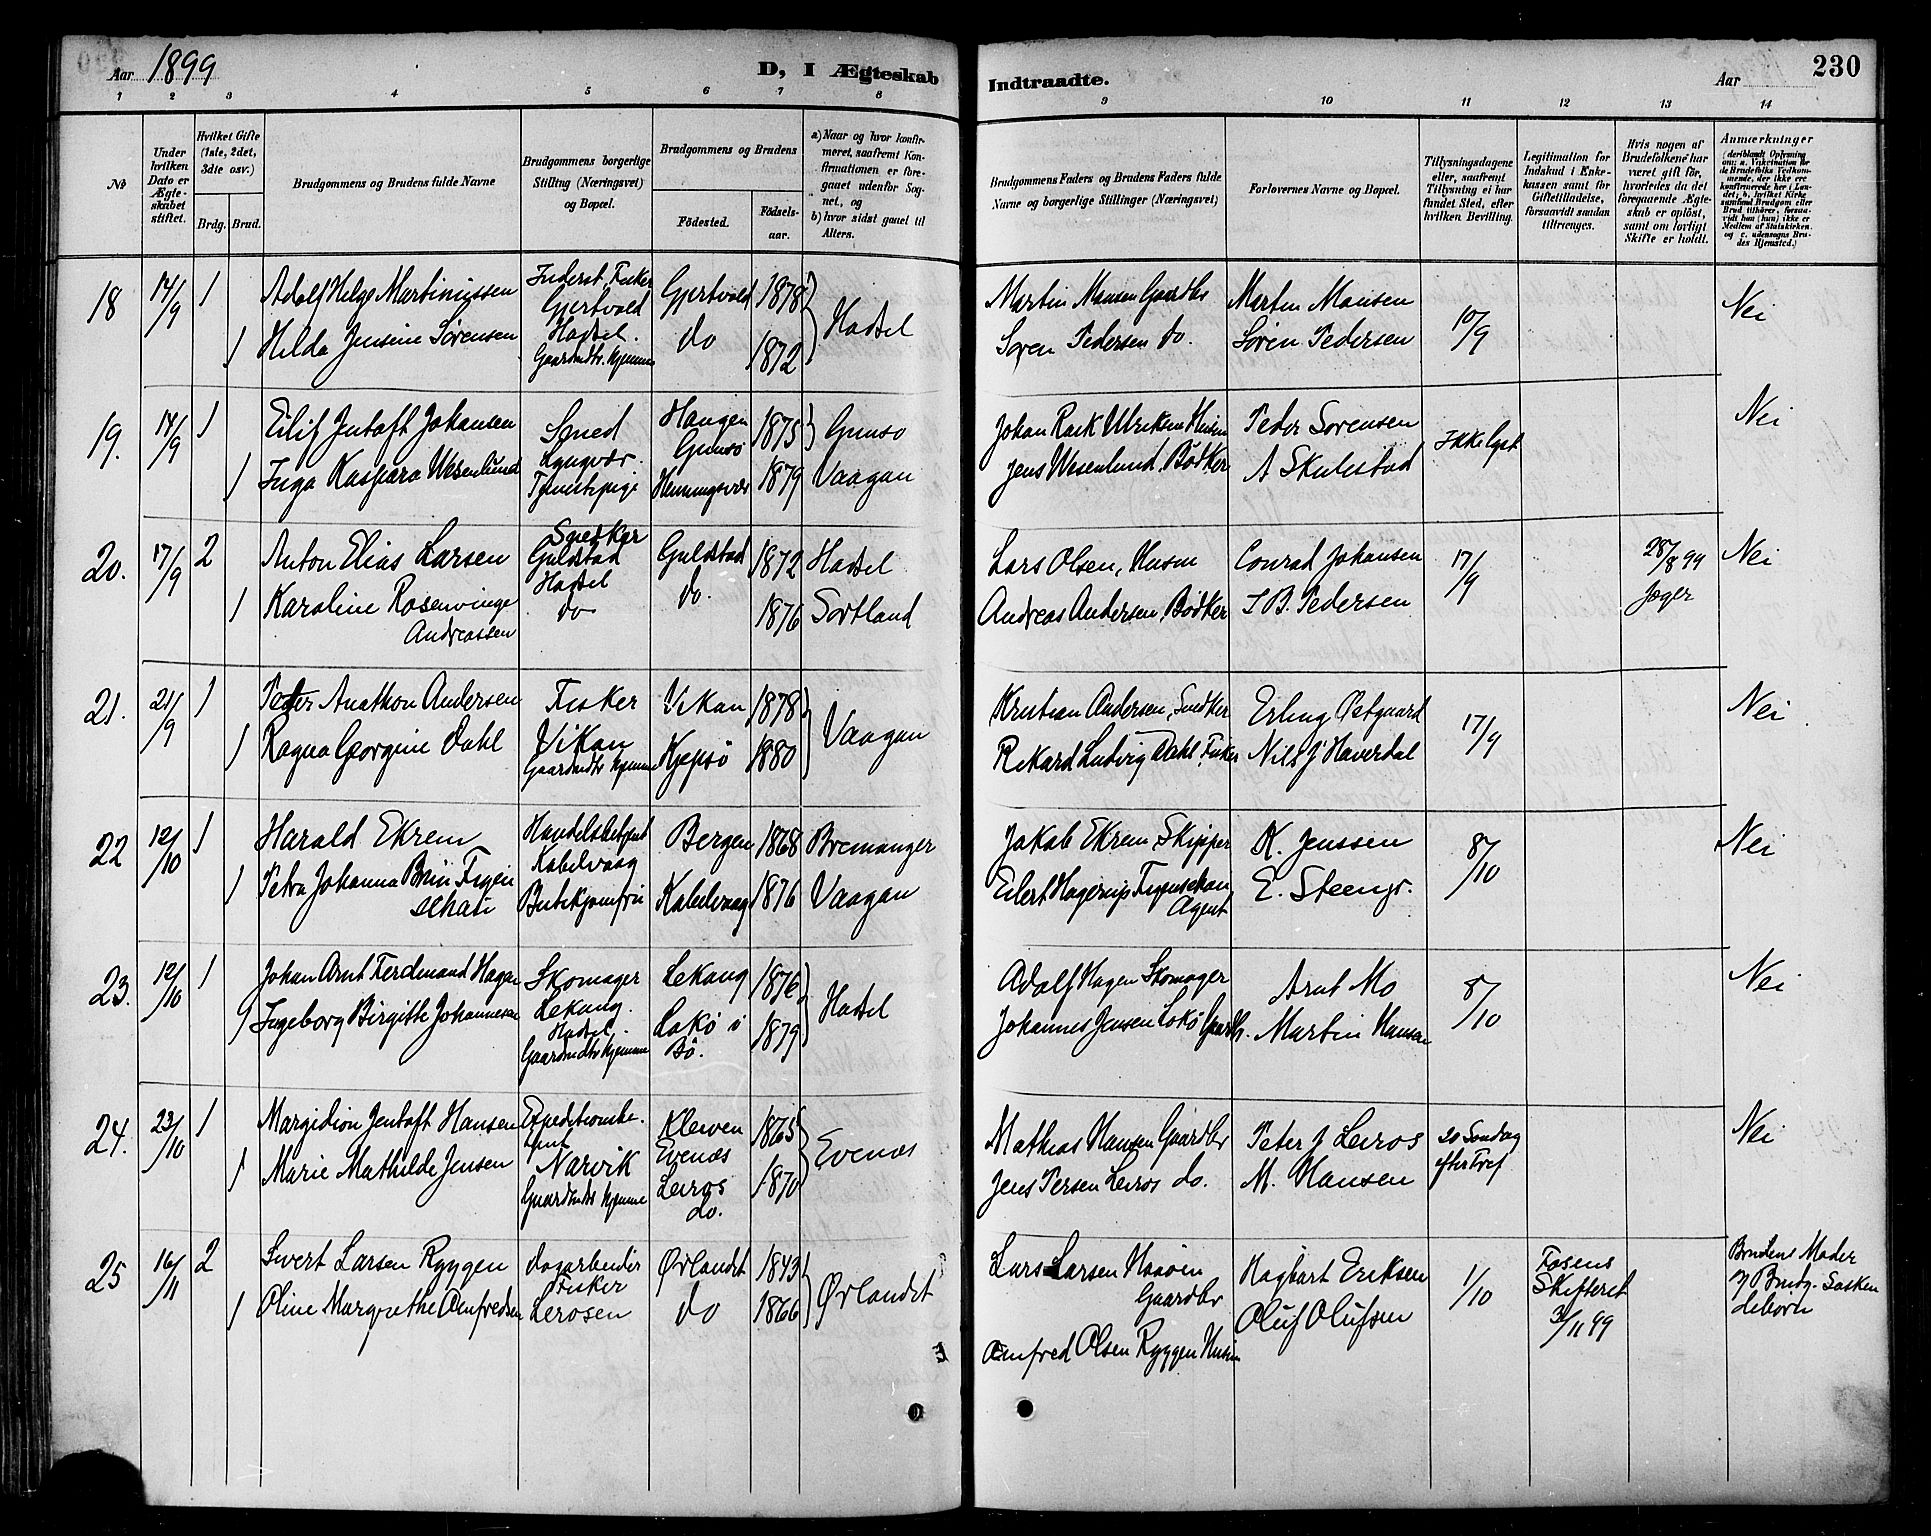 Aar 1899
D, I Ægteskab
Indtraadte.
Aar
230
1 2 3 4 5 6 7 8 9 10 11 12 13 14
No
Under hvilken Dato er Ægteskabet stiftet.
Hvilket Gifte (1ste, 2det, 3die osv.)
Brdg. Brud.
Brudgommens og Brudens fulde Navne
Brudgommens borgerlige Stilling (Næringsvei) og Bopæl.
Brudgommens og Brudens
Födested.
Födselsaar.
a) Naar og hvor konfirmeret, saafremt Konfirmationen er foregaaet udenfor Sognet, og
b) hvor sidst gaaet til Alters.
Brudgommens Faders og Brudens Faders fulde Navne og borgerlige Stillinger (Næringsvei)
Forlovernes Navne og Bopæl.
Tillysningsdagene eller, saafremt Tillysning ei har fundet Sted, efter hvilken Bevilling.
Legitimation for Indskud i Enkekassen samt for Giftetilladelse, forsaavidt saadan tiltrænges.
Hvis nogen af Brudefolkene har været gift før, hvorledes da det foregaaende Ægteskab er oplöst, samt om lovligt Skifte er holdt.
Anmærkninger
18 14/9 1 Adolf Helge Martinussen Inderst, Fisker Gjertvold Gjertvold 1878 Hadsel Martin Hansen Gaardbr Martin Hansen 10/9 Nei
1 Hilda Jensine Sørensen Hadsel. Gaardmdtr. hjemme do 1872 Søren Pedersen do. Søren Pedersen
19. 14/9 1 Eilif Jentoft Johansen Smed Haugen Gimsø 1875 Gimsø Johan Rask Ulriksen Husm Peder Sørensen Ikke lyst Nei
1 Inga Kaspara Wesenlund Lyngvær. Tjenestepige Henningsvær 1879 Vaagan Jens Wesenlund, Bødker A Skulestad
20. 17/9 2 Anton Elias Larsen Snedker Guldstad Hadsel Guldstad 1872 Hadsel Lars Olsen, Husm Conrad Johansen 17/9 28/8 99 Jæger Nei
1 Karoline Rosenvinge Andreassen do do. 1876 Sortland Andreas Andersen, Bødker I B. Pedersen
21. 21/9 1 Peder Anathon Andersen Fisker Vikan 1878 Vaagan Kristian Andersen, Snedker Erling Østgaard 17/9 Nei
1 Ragna Georgine Dahl Vikan Gaardmdtr hjemme Kjepsø 1880 Rikard Ludvig Dahl, Fisker Nils J Haverdal
22 12/10 1 Harald Ekrem Handelsbetjent Kabelvaag Bergen 1868 Bremanger Jakob Ekrem, Skipper K. Jenssen 8/10 Nei
1 Petra Johanna Butikjomfru Kabelvaag 1876 Vaagan Eilert Hagerup Agent E. Steengr.
23. 12/10 1 Johan Arnt Ferdinand Hagen Skomager Lekang. Hadsel. Lekang 1876 Hadsel Adolf Hagen Skomager Arnt Mo 8/10 Nei
1 Ingeborg Birgitte Johannesen Gaardmdtr hjemme Lakø i Bø. 1879 Johannes Jensen Lokø Gaardbr. Martin Hansen
24. 23/10 1 Margidion Jentoft Hansen Narvik Kleiven Evenæs 1865 Evenæs Mathias Hansen Gaardbr Peter J Leiros 20 Søndag efter Tref Nei
1 Marie Mathilde Jensen Gaardmdtr hjemme Leiros do. 1870 Jens Persen Leiros do. M. Hansen
25 16/11 2 Sivert Larsen Ryggen dagarbeider Fisker Ørlandet 1843 Ørlandet Lars Larsen Gaardbr Hagbart Eriksen 1/10 Fosens Skifteret 3/11 99 Brudens Moder
1 Oline Margrethe Arnfredsen Lerosen do 1866 Arnfred Olsen Ryggen Husm Oluf Olufsen